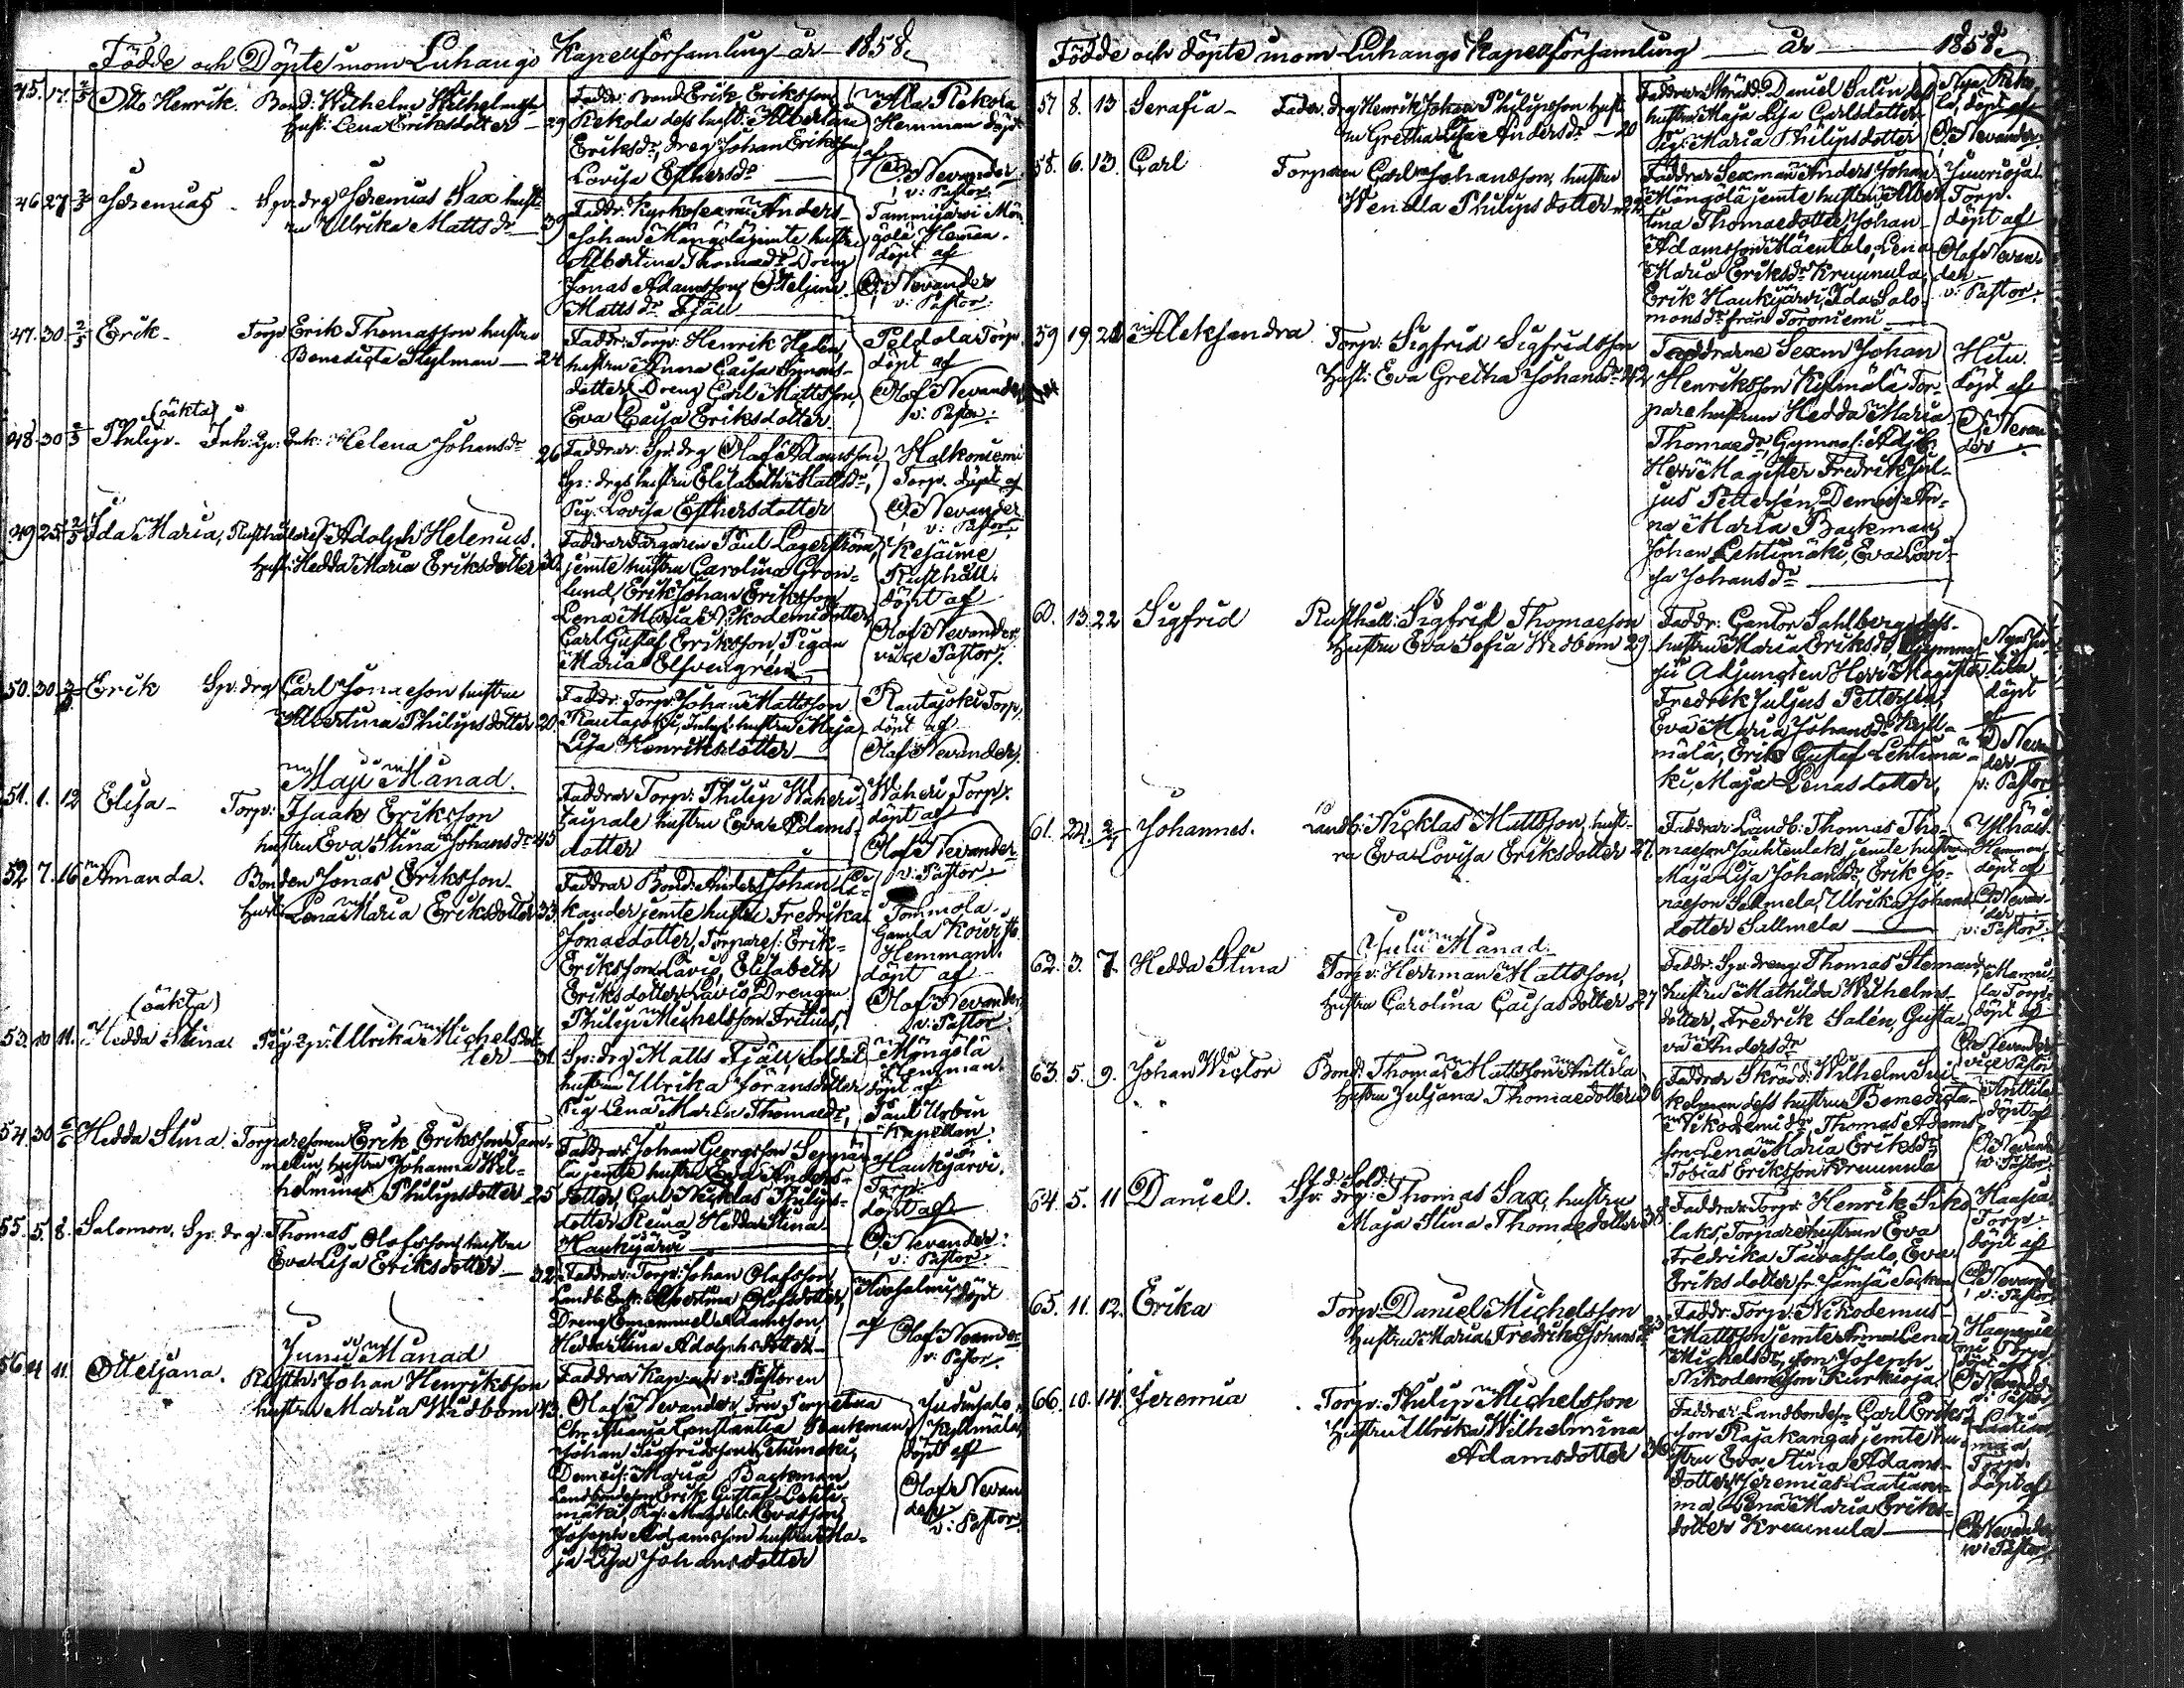 Födde och Döpte inom Luhango Kapellförsamling år 1858.
45. 17. 2/5 Otto Henrik. Bond: Wilhelm Wilhelmsson
hust: Lena Eriksdotter — 29
Faddr: Bond Erik Eriksson
Rekola dess hust: Albertina
Eriksdr, dreg Johan Eriksson
Lovisa Esthersdr
Ala Rekola
Hemman döpt
af
O: Nevander
v: Pastor
46 27 2/5 Jeremias Sp: drg Jeremias Sax hust-
ru Ullrika Mattsdr — 39
Faddr: Kyrkosexm: Anders
Johan Mängölä jemte hustru
Albertina Thomaedr Dreng
Jonas Adamsson, Otteljana
Mattsdr Fjäll
Tammijärvi Män-
gölä Hemman
döpt af
O: Nevander
v: Pastor
47. 30 2/5 Erik — Torp Erik Thomasson hustru
Benedicta Stylman — 24
Faddr: Torp: Henrik Heden,
hustru Anna Caisa Simons-
dotter, Dreng Carl Mattsson,
Eva Caisa Eriksdotter
Peldola Torp
döpt af
Olof Nevander
v: Pastor
48. 30 2/5 (oäkta) Philip. Inh: Enk: Helena Johansdr 26
Faddrar: Sp: drg Olof Adamsson,
Sp: drgs hustru Elisabeth Mattsdr,
Pig: Lovisa Esthersdotter
Halkoniemi
Torp. döpt af
O: Nevander
v: Pastor
49 25 2/5 Ida Maria, Rusthållaren Adolph Helenius.
hust: Hedda Maria Eriksdotter 30
Faddrar Färgaren Paul Lagerström,
jemte hustru Carolina Grön-
lund, Erik Johan Eriksson
Lena Maria Nikodemidotter
Carl Gustaf Eriksson, Pigan
Maria Elfvengren
Kesäime
Rusthåll.
döpt af
Olof Nevander
vice Pastor
50. 30 3/5 Erik Sp: drg Carl Jonaeson hustru
Albertina Philipsdotter 20
Faddr: Torp: Johan Mattsson
Rautajoki, Inhys: hustru Maja
Lisa Henriksdotter
Rautajoki Torp
döpt af
Olof Nevander
Maji Månad.
51. 1. 12 Elisa — Torp: Isaak Eriksson
hustru Eva Stina Johansdr 45
Faddrar Torp: Philip Waheri
hustru Eva Adams-
dotter
Waheri Torp
döpt af
Olof Nevander
v: Pastor
52 7. 16 Amanda. Bonden Jonas Eriksson
hust: Lena Maria Eriksdotter 33
Faddrar Bond: Anders Johan Le-
kander jemte hustru Fredrika
Jonaedotter, Torpares: Erik
Eriksson Lavio, Elisabeth
Eriksdotter Lavio, Drengen
Philip Michelsson Fritius
Tommola
Gamla
Hemman.
döpt af
Olof Nevander
v: Pastor
53. 10 11. (oäkta) Hedda Stina Pig: Ullrika Michelsdot-
ter — 31
Sp: drg Matts Fjäll, Soldat
hustru Ulrika Jöransdotter
Pig Lena Maria Thomaedr,
Mängölä
Hemman.
döpt af
Paul Urbin
Kapellan
54 30 6/6 Hedda Stina: Torparesonen Erik Eriksson Tam-
melin, hustru Johanna Wil-
helmina Philipsdotter 25
Faddrar Johan Georgsson Seppä-
lä jemte hustru Eva Anders-
dotter, Carl Nicklas Philips-
dotter Hedda Stina
Haukijärvi
Haukijärvi
Torp.
döpt af
O: Nevander
v: Pastor
55. 5. 8. Salomon. Sp: drg: Thomas Olofsson, hustru
Eva Lisa Eriksdotter — 32
Faddrar: Torp: Johan Olofsson,
Landb: Enk: Albertina Olofsdotter,
Dreng Emanuel Adamsson,
Hedda Stina Adolphsdotter
döpt
af
Olof Nevander
v: Pastor
Junii Månad
56 4 11 Otteljana. Rusth: Johan Henriksson
hustru Maria Widbom 43.
Faddrar Kap: och v: Pastoren
Olof Nevander, Fru Perpetua
Christiana Constantia Backman,
Johan Sigfridsson Lehtimäki,
Demois: Maria Backman,
Landbondeson Erik Gustaf Lehti-
mäki, Pig: Magdal: Evasdotter,
Joseph Adamsson hustru Ma-
ja Lisa Johansdotter
Judinsalo
Kyllmälä
döpt af
Olof Nevan
der
v: Pastor
Födde och döpte inom Luhango Kapellförsamling år 1858.
57 8. 13 Serafia — Drg Henrik Johan Philipsson hust-
ru Gretha Lisa Andersdr — 20
Faddrar Skrädd: Daniel Salin
hustru Maja Lisa Carlsdotter
Pig: Maria Philipsdotter
Nya Reko
la, döpt af
O: Nevander
58. 6. 13. Carl Torparen Carl Johansson, hustru
Wendla Philipsdotter 22
Faddrar Sexman Anders Johan
Mängölä jemte hustru Alber-
tina Thomaedotter, Johan
Adamsson Mäentalo, Lena
Maria Eriksdr Kruunula,
Erik Haukijärvi, Ida Salo-
monsdr från Toroniemi
Juurioja
Torp.
döpt af
Olof Nevan-
der
v: Pastor
59 19. 21 Aleksandra Torp: Sigfrid Sigfridsson
Hust: Eva Gretha Johansdr 42
Faddrarne Sexm: Johan
Henriksson Kyllmälä Tor-
parehustrun Hedda Maria
Thomaedr, Gymnas: Adju:
Herr Magister Fredrik Jul-
jus Pettersén, Demois: An-
na Maria Backman,
Johan Lehtimäki, Eva Lovi-
sa Johansdr
Hitu.
döpt af
O: Nevan
der
60. 13. 22 Sigfrid Rusthåll: Sigfrid Thomaeson
Hustru Eva Sofia Widbom 29
Faddr: Cantor Sahlberg dess
hustru Maria Eriksdr, Gymna-
sii Adjungten Herr Magister
Fredrik Juljus Pettersén,
Eva Maria Johansdr Kyll-
mälä, Erik Gustaf Lehtimä-
ki, Maja Lenasdotter,
döpt
af
O: Nevan
der
v: Pastor
61. 24. 2/7 Johannes. Landb: Nicklas Mattsson, hust-
ru Eva Lovisa Eriksdotter 27
Faddrar Landb: Thomas Tho-
maeson jemte hustru
Maja Lisa Johansdr Erik Jo-
naeson Sallmela, Ulrika Johans
dotter Sallmela
Hemman
döpt af
O: Nevan-
der
v: Pastor
Julii Månad
62. 3. 7. Hedda Stina Torp: Herman Mattsson,
Hustru Carolina Caisasdotter 27
Faddr: Sp: dreng Thomas Stenman
hustru Mathilda Wilhelms-
dotter, Fredrik Salén, Gusta-
va Andersdr
la Torp.
döpt af
O: Nevander
vice Pastor
63. 5. 9. Johan Wictor Bond: Thomas Mattsson Anttila
Hustru Juljana Thomaedotter 36
Faddrar Skrädd: Wilhelm
dess hustru Benedicta
Nikodemidr Thomas Adams-
son Lena Maria Eriksdr
Tobias Eriksson Kruunula
Anttila
döpt af
O: Nevander
v: Pastor
64. 5. 11 Daniel. Afsk: Sold:
Sp: drg: Thomas Sax, hustru
Maja Stina Thomaedotter 38
Faddrar: Torp: Henrik Siko
laks, Torparehustrun Eva
Fredrika Taivassalo, Eva
Eriksdotter fr. Jämsä Socken
Haasia
Torp.
döpt af
O: Nevander
v: Pastor
65. 11. 12. Erika Torp: Daniel Michelsson
Hustru Maria Fredrika Johansdr 23
Faddr: Torp: Nikodemus
Mattsson jemte Anna Lena
Michelsdr, son Joseph
Nikodemisson Kurkioja
Haapanie
mi Torp
döpt af
O: Nevander
v: Pastor
66. 10. 14. Jeremia Torp: Philip Michelsson
Hustru Ullrika Wilhelmina
Adamsdotter 36
Faddrar Landbondeson Carl Eriks-
son Rajakangas jemte hu-
stru Eva Stina Adams-
dotter, Jeremias Laatiain-
ma, Lena Maria Eriks-
dotter Kruunula
Torp.
döpt af
O: Nevander
v: Pastor